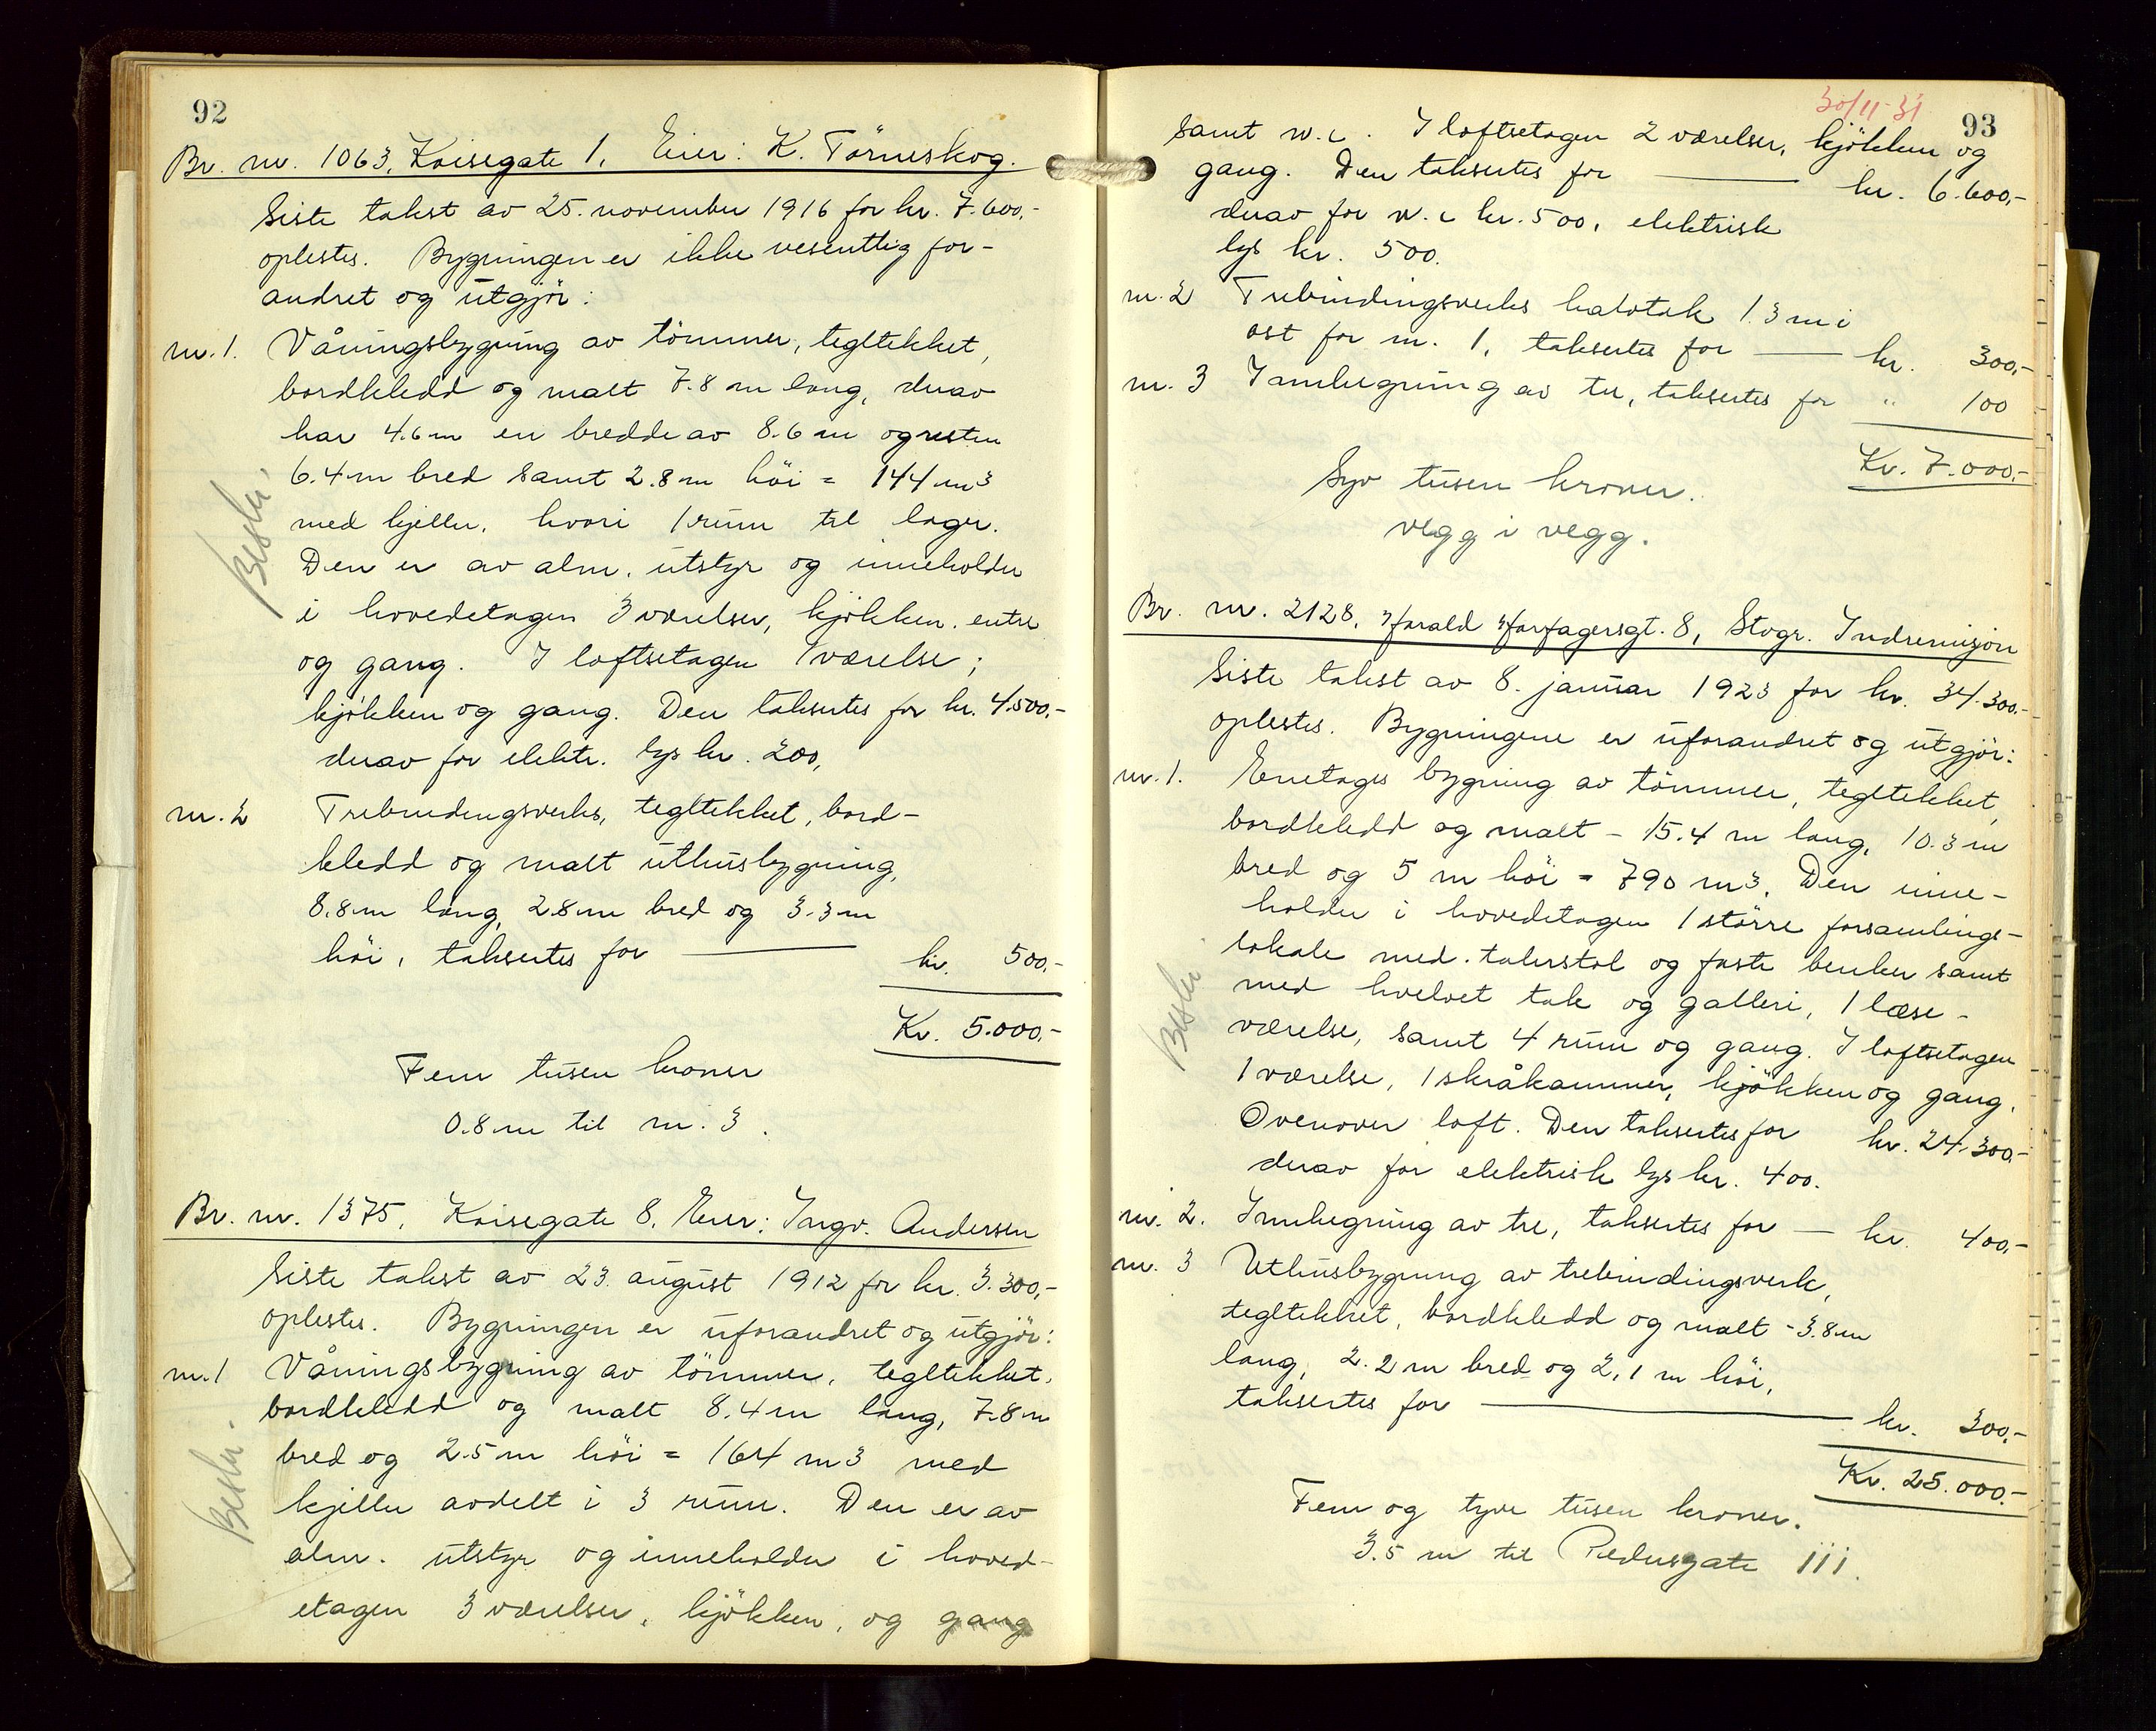 92
Br. nr. 1063, Kaisegate 1. Eier: K. Törneskog.
Siste takst av 25. november 1916 for kr. 7.600,-
oplestes. Bygningen er ikke vesentlig for-
andret og utgjör:
nr. 1. Våningsbygning av tömmer, tegltekket,
bordkledd og malt 7.8 m lang, derav
har 4.6 m en bredde av 8.6 m og resten
6.4 m bred samt 2.8 m höi = 144 m3
med kjeller, hvori 1 rum til lager.
Den er av alm. utstyr og inneholder
i hovedetagen 3 værelser, kjökken, entre
og gang. I loftsetagen 1 værelse;
kjökken og gang. Den taksertes for kr. 4.500,-
derav for elektr. lys kr. 200,
Beskr.
nr. 2 Trebindingsverks, tegltekket, bord-
kledd og malt uthusbygning,
8.8 m lang, 2.8 m bred og 3.3 m
höi, taksertes for — kr. 500,-
Kr. 5.000,-
Fem tusen kroner
0.8 m til nr. 3.
Br. nr. 1375, Kaisegate 8, Eier: Ingv. Andersen
Siste takst av 23. august 1912 for kr. 3.300,-
oplestes. Bygningen er uforandret og utgjör:
nr. 1 Våningsbygning av tömmer, tegltekket,
bordkledd og malt 8.4 m lang, 7.8 m
bred og 2.5 m höi = 164 m3 med
kjeller avdelt i 3 rum. Den er av
alm. utstyr og inneholder i hoved-
etagen 3 værelser, kjökken, og gang
Beskr.
30/11-31
93
samt w.c. I loftsetagen 2 værelser, kjökken og
gang. Den taksertes for — kr. 6.600,-
derav for w.c kr. 500, elektrisk
lys kr. 500.
nr. 2 Trebindingsverks halvtak 1.3 m i
öst for nr. 1, taksertes for — kr. 300,-
nr. 3 Innhegning av tre, taksertes for " 100
Kr. 7.000,-
Syv tusen kroner.
vegg i vegg.
Br. nr. 2128, Harald Harfagersgt. 8, Stvgr. Indremisjon
Siste takst av 8. januar 1923 for kr. 34.300,-
oplestes. Bygningene er uforandret og utgjör:
nr. 1. Enetages bygning av tömmer, tegltekket,
bordkledd og malt - 15.4 m lang, 10.3 m
bred og 5 m höi = 790 m3. Den inne-
holder i hovedetagen 1 större forsamlings-
lokale med talerstol og faste benker samt
med hvelvet tak og galleri, 1 læse-
værelse, samt 4 rum og gang. I loftsetagen
1 værelse, 1 skråkammer, kjökken og gang.
Ovenover loft. Den taksertes for kr. 24.300,-
derav for elektrisk lys kr. 400.
Beskr.
nr. 2. Innhegning av tre, taksertes for — kr. 400,-
nr. 3 Uthusbygning av trebindingsverk,
tegltekket, bordkledd og malt - 3.8 m
lang, 2.2 m bred og 2,1 m höi,
taksertes for — kr. 300,-
Kr. 25.000,-
Fem og tyve tusen kroner.
3.5 m til Pedersgate 111.